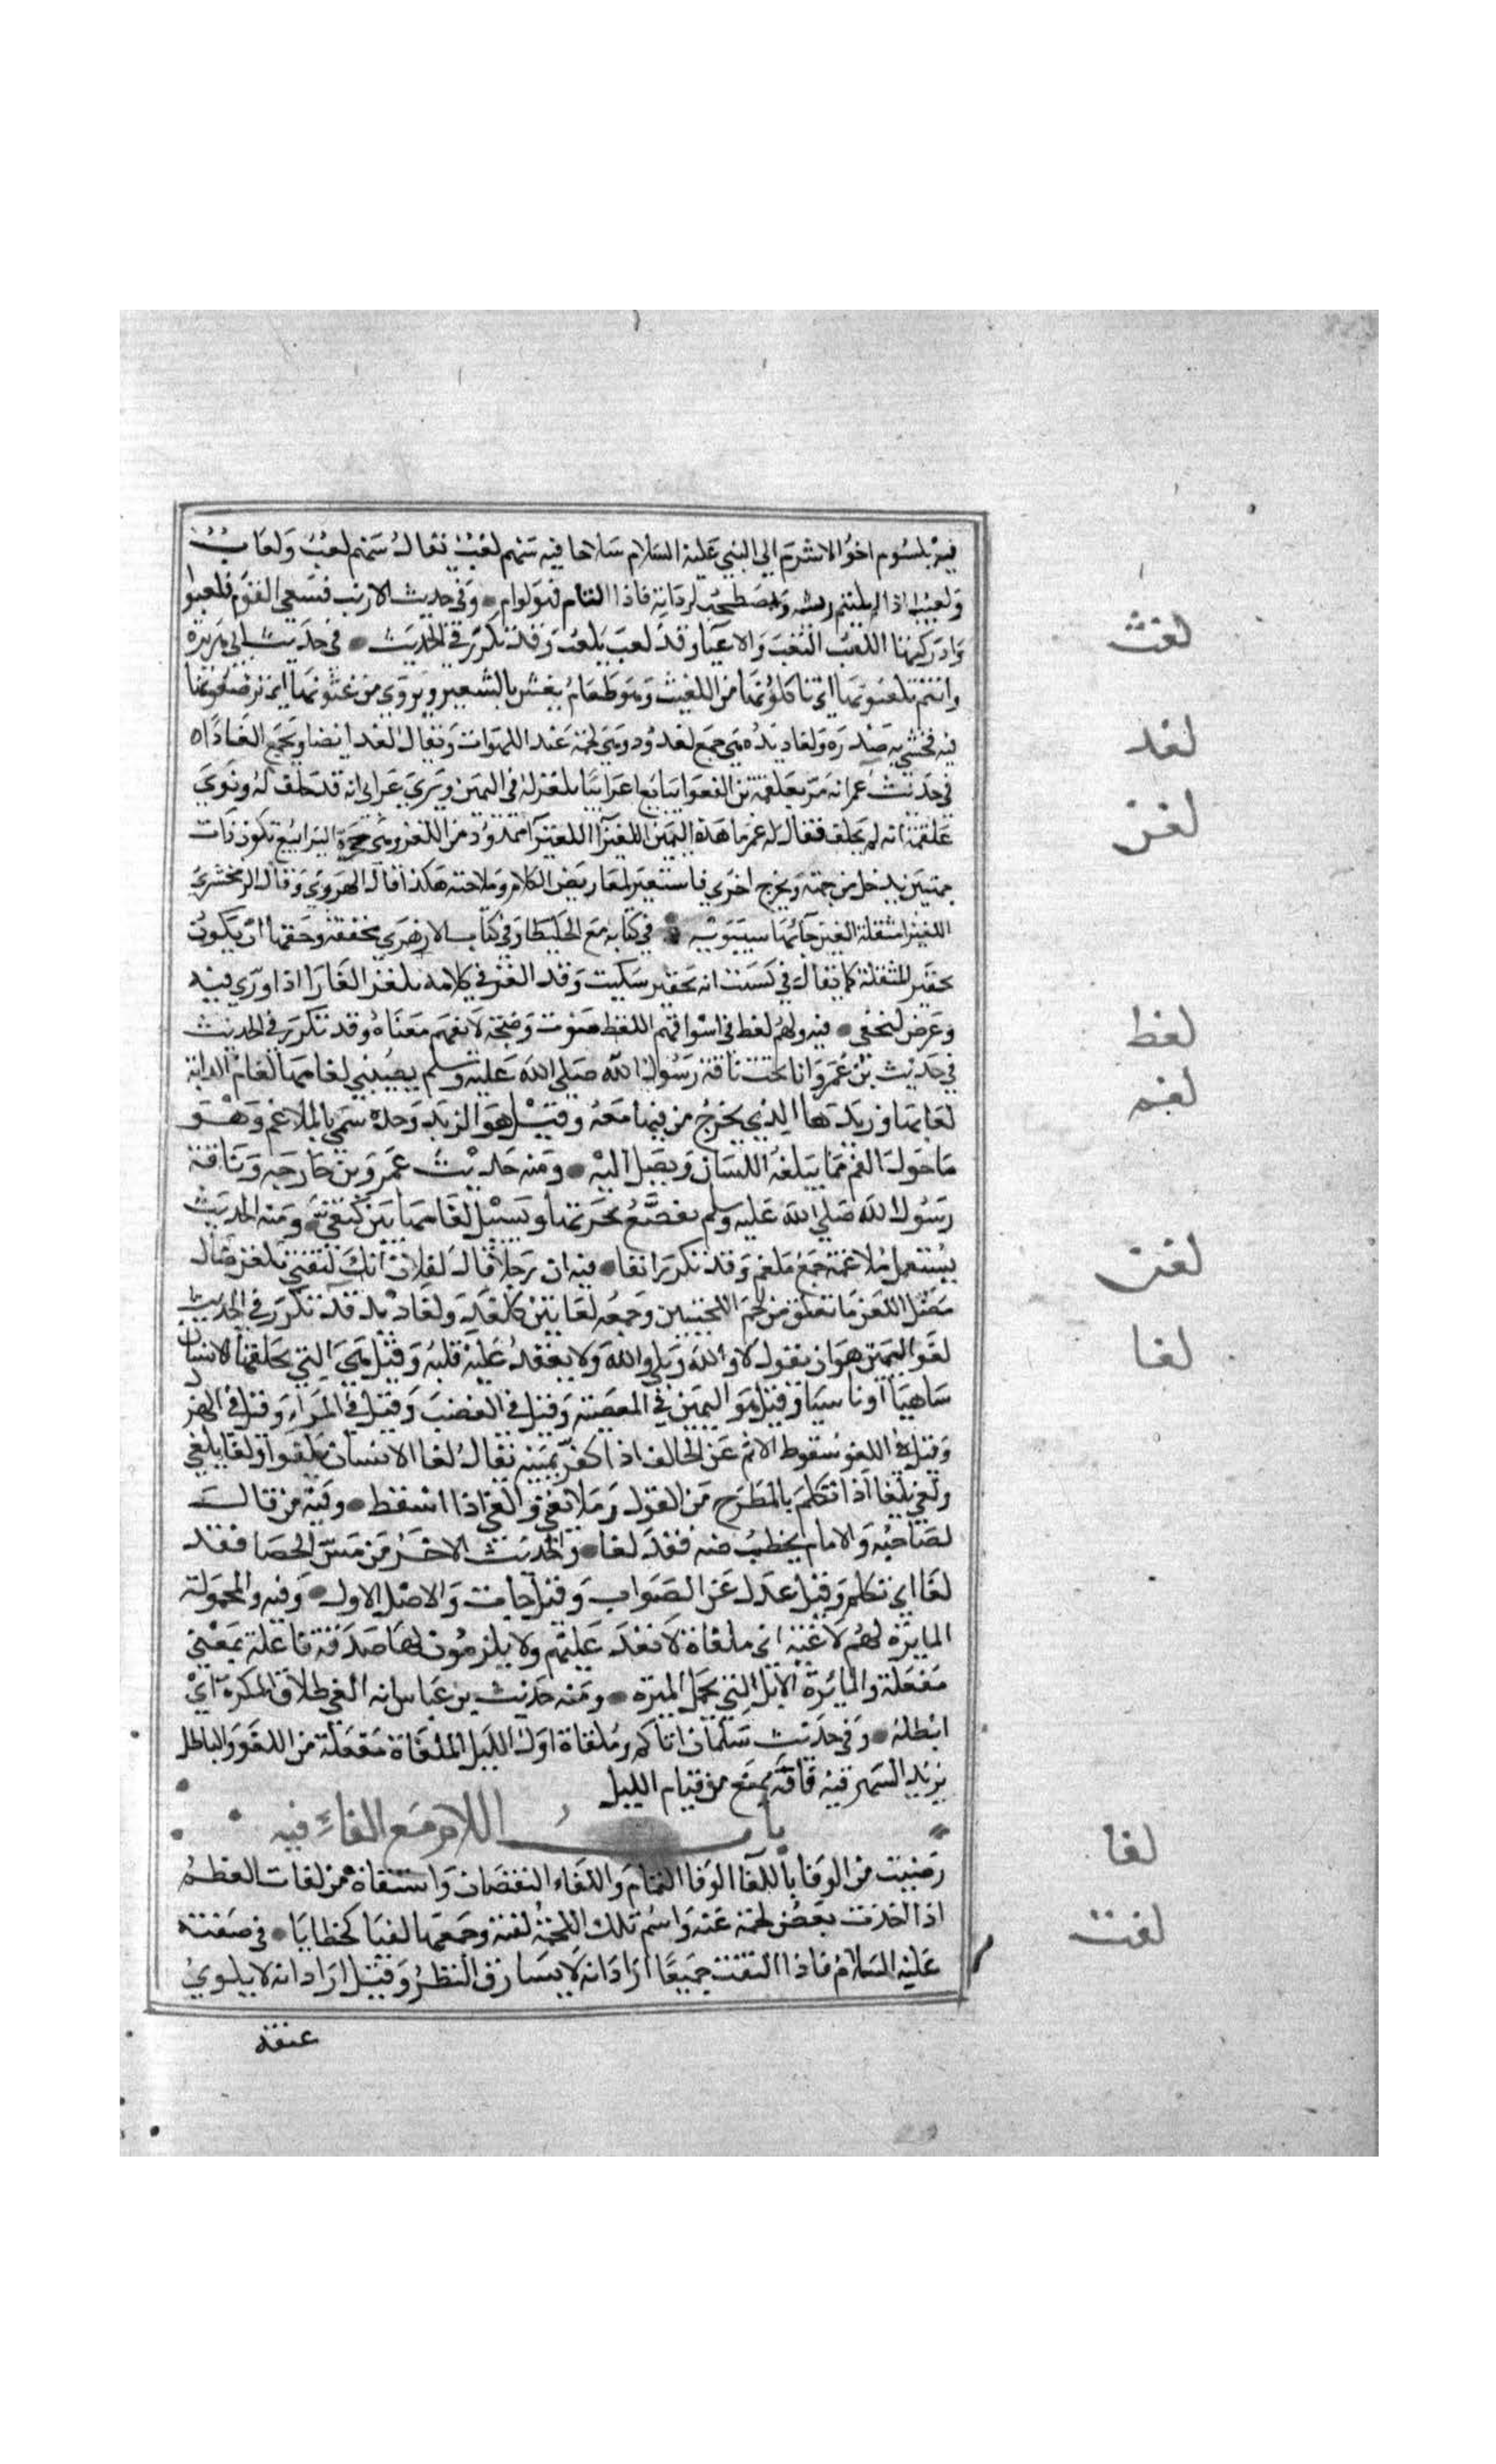 فيه بلسوم اخو الاشرم الي النبي عليه السلام سلاحا فيه سهم لغب يقال سهم لغب ولغاب
ولغيب اذا لم يلتئم ريشه ويصطحب لرداته فاذا التام فهو لوام وفي حديث الارنب فسعي القوم فلغبوا
وادركتها اللغب التعب والاعيا وقد لغب يلغب وقد تكرر في الحديث في حديث ابي هريرة
لغث
وانتم تلغثونها اي تاكلونها من اللغيث وهو طعام يغش بالشعير ويروي ترغثونها اي ترضعونها
لغد
فيه فحشي به صدره ولغاديده هي جمع لغدود وهي لحمة عند اللهوات ويقال لغد ايضا ويجمع الغادا
لغز
في حديث عمر انه مر بعلقمة بن الفغوا يبايع اعرابيا يلغز له في اليمين ويري عرابي انه قد حلف له ونوي
علقمة انه لم يحلف فقال له عمر ما هذه اليمين اللغيزا اللغيزا ممدود من اللغز وهي حجرة اليرابيع تكون ذات
جهتين يدخل من جهة ويخرج اخري فاستعير لمعاريض الكلام وملاحنه هكذا قال الهروي وقال الزمخشري
اللغيزا مثقلة الغين جا بها سيبويه في كتابه مع الخليطا وفي كتاب الازهري مخففة وحقها ان يكون
تحقير المثقلة كما يقال في سكيت انه تحقير سكيت وقد الغز في كلامه يلغز الغازا اذا اوري فيه
وعرض لتخفي فيه ولهم لغط في اسواقهم اللغط صوت وضجة لا يفهم معناه وقد تكرر في الحديث
لغط
في حديث بن عمر وانا تحت ناقة رسول الله صلي الله عليه وسلم يصيبني لغامها لغام الدابة
لغم
لعابها وزبدها الذي يخرج من فيها معه وقيل هو الزبد وحده سمي بالملاغم وهو
ما حول الفم مما يبلغه اللسان ويصل اليه ومنه حديث عمرو بن خارجة وناقة
رسول الله صلي الله عليه وسلم تقصع بجرتها ويسيل لغامها بين كتفي ومنه الحديث
يستعمل ملاغمه جمع ملغم وقد تكرر انفا فيه ان رجلا قال لفلان انك لتفتي بلغن ضال
لغن
مضل اللغن ما تعلق من لحم اللحيين وجمعه لغانين كلغد ولغاديد قد تكرر في الحديث
لغا
لغو اليمين هو ان يقول لا والله وبلي والله ولا يعقد عليه قلبه وقيل هي التي يحلفها الانسان
ساهيا او ناسيا وقيل هو اليمين في المعصية وقيل في الغضب وقيل في المراء وقيل في الهزل
وقيل اللغو سقوط الاثم عن الحالف اذا كفر يمينه يقال لغا الانسان يلغوا ولغا يلغي
ولغي يلغا اذا تكلم بالمطرح من القول وما لا يغني والغي اذا اسقط وفيه من قال
لصاحبه والامام يخطب صه فقد لغا والحديث الاخر من مس الحصا فقد
لغا اي تكلم وقيل عدل عن الصواب وقيل خاب والاصل الاول وفيه والحمولة
المايرة لهم لاغية اي ملغاة لا تعد عليهم ولا يلزمون لها صدقة فاعلة بمعني
مفعلة والمائرة الابل التي تحمل الميرة ومنه حديث بن عباس انه الغي طلاق المكره اي
ابطله وفي حديث سلمان اياكم وملغاة اول الليل الملغاة مفعلة من اللغو والباطل
يريد السهر فيه فانه يمنع من قيام الليل
باب اللام مع الفاء فيه
لفا
رضيت من الوفا باللفا الوفا التمام واللفاء النقصان واشتقاقه من لفات العظم
اذا اخذت بعض لحمه عنه واسم تلك اللحمة لفئة وجمعها لفايا كخطايا في صفته
لفت
عليه السلام فاذا التفت جميعا اراد انه لا يسارق النظر وقيل اراد انه لا يلوي
عنقه